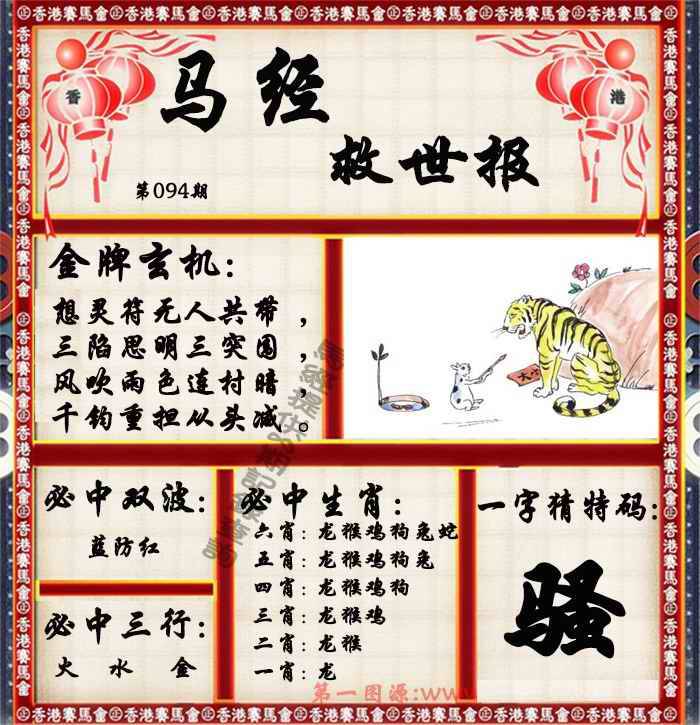 香港赛馬會
香
港
马经
救世报
第094期
金牌玄机：
想灵符无人共带，
三陷思明三突围，
风吹雨色连村暗，
千钧重担从头减。
必中双波：
蓝防红
必中三行：
火 水 金
必中生肖：
六肖：龙猴鸡狗兔蛇
五肖：龙猴鸡狗兔
四肖：龙猴鸡狗
三肖：龙猴鸡
二肖：龙猴
一肖：龙
一字猜特码：
骚
第一图源:www